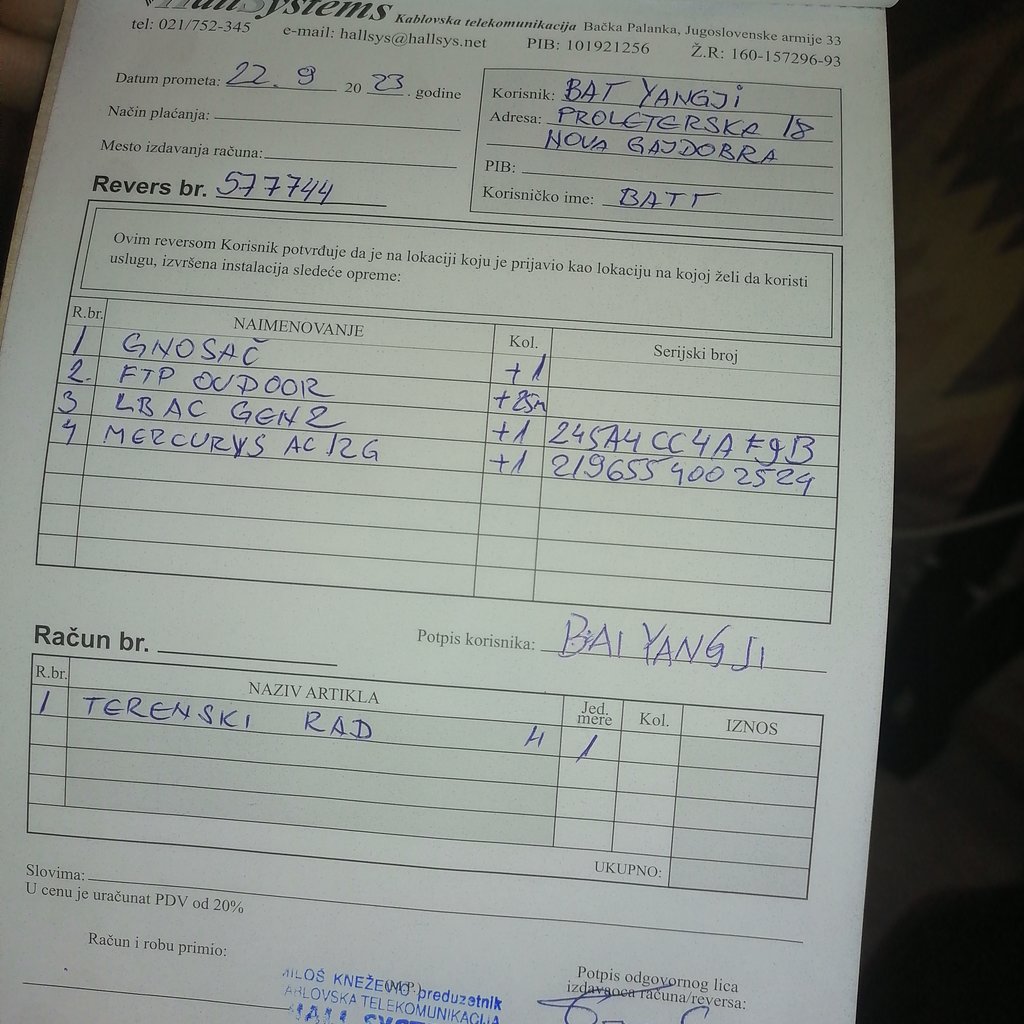 HallSystems Kablovska telekomunikacija Bačka Palanka, Jugoslovenske armije 33
tel: 021/752-345 e-mail: hallsys@hallsys.net PIB: 101921256 Ž.R: 160-157296-93
Datum prometa: 22. 9 20 23. godine
Način plaćanja:
Mesto izdavanja računa:
Revers br. 577744
Korisnik: BAT YANGJI
Adresa: PROLETERSKA 18
NOVA GAJDOBRA
PIB:
Korisničko ime: BATT
Ovim reversom Korisnik potvrđuje da je na lokaciji koju je prijavio kao lokaciju na kojoj želi da koristi
uslugu, izvršena instalacija sledeće opreme:
R.br. NAIMENOVANJE Kol. Serijski broj
1 GNOSAČ +1
2. FTP OUDOOR +25m
3 LBAC GEN2 +1 245A4CC4AF9B
4 MERCURYS AC12G +1 2196554002524
Potpis korisnika: BAI YANGJI
Račun br.
R.br. NAZIV ARTIKLA Jed. mere Kol. IZNOS
1 TERENSKI RAD H 1
UKUPNO:
Slovima:
U cenu je uračunat PDV od 20%
Račun i robu primio:
(M.P.)
MILOŠ KNEŽEVIĆ preduzetnik
KABLOVSKA TELEKOMUNIKACIJA
HALL SYSTEMS
Potpis odgovornog lica
izdavaoca računa/reversa: